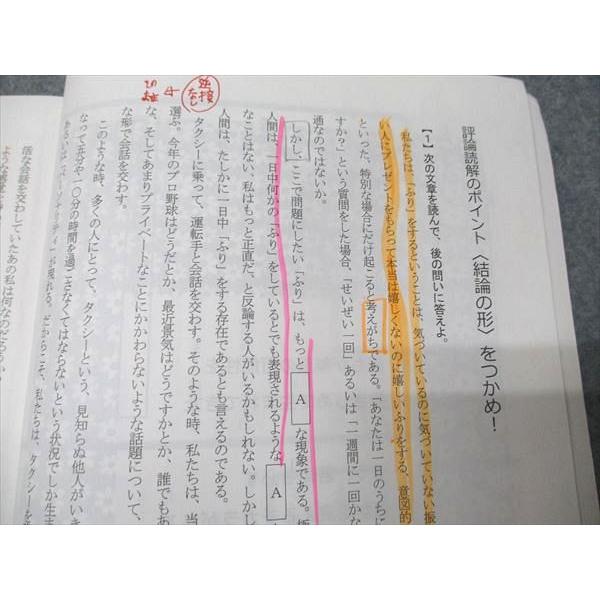 評論読解のポイント〈結論の形〉をつかめ！
【１】次の文章を読んで、後の問いに答えよ。
私たちは、「ふり」をするということは、気づいているのに気づいていない振
い人にプレゼントをもらって本当は嬉しくないのに嬉しいふりをする、意図的
といった、特別な場合にだけ起こると考えがちである。「あなたは一日のうちに
すか？」という質問をした場合、「せいぜい一回」あるいは「一週間に一回かな
通なのではないか。
しかし、ここで問題にしたい「ふり」は、もっと A な現象である。
人間は、一日中何かの「ふり」をしているとでも表現されるような A
なことはない、私はもっと正直だ、と反論する人がいるかもしれない。しかし
人間は、たしかに一日中「ふり」をする存在であるとも言えるのである。
タクシーに乗って、運転手と会話を交わす。そのような時、私たちは、当
選ぶ。今年のプロ野球はどうだとか、最近景気はどうですかとか、誰でもあ
な、そしてあまりプライベートなことにかかわらないような話題について、
な形で会話を交わす。
このような時、多くの人にとって、タクシーという、見知らぬ他人がいき
なって五分や一〇分の時間を過ごさなくてはならないという状況でしか生ま
が現れる。だからこそ、私たちは、タクシーを
活な会話を交わしていたあの私は何なのだろうか
逆接
なし